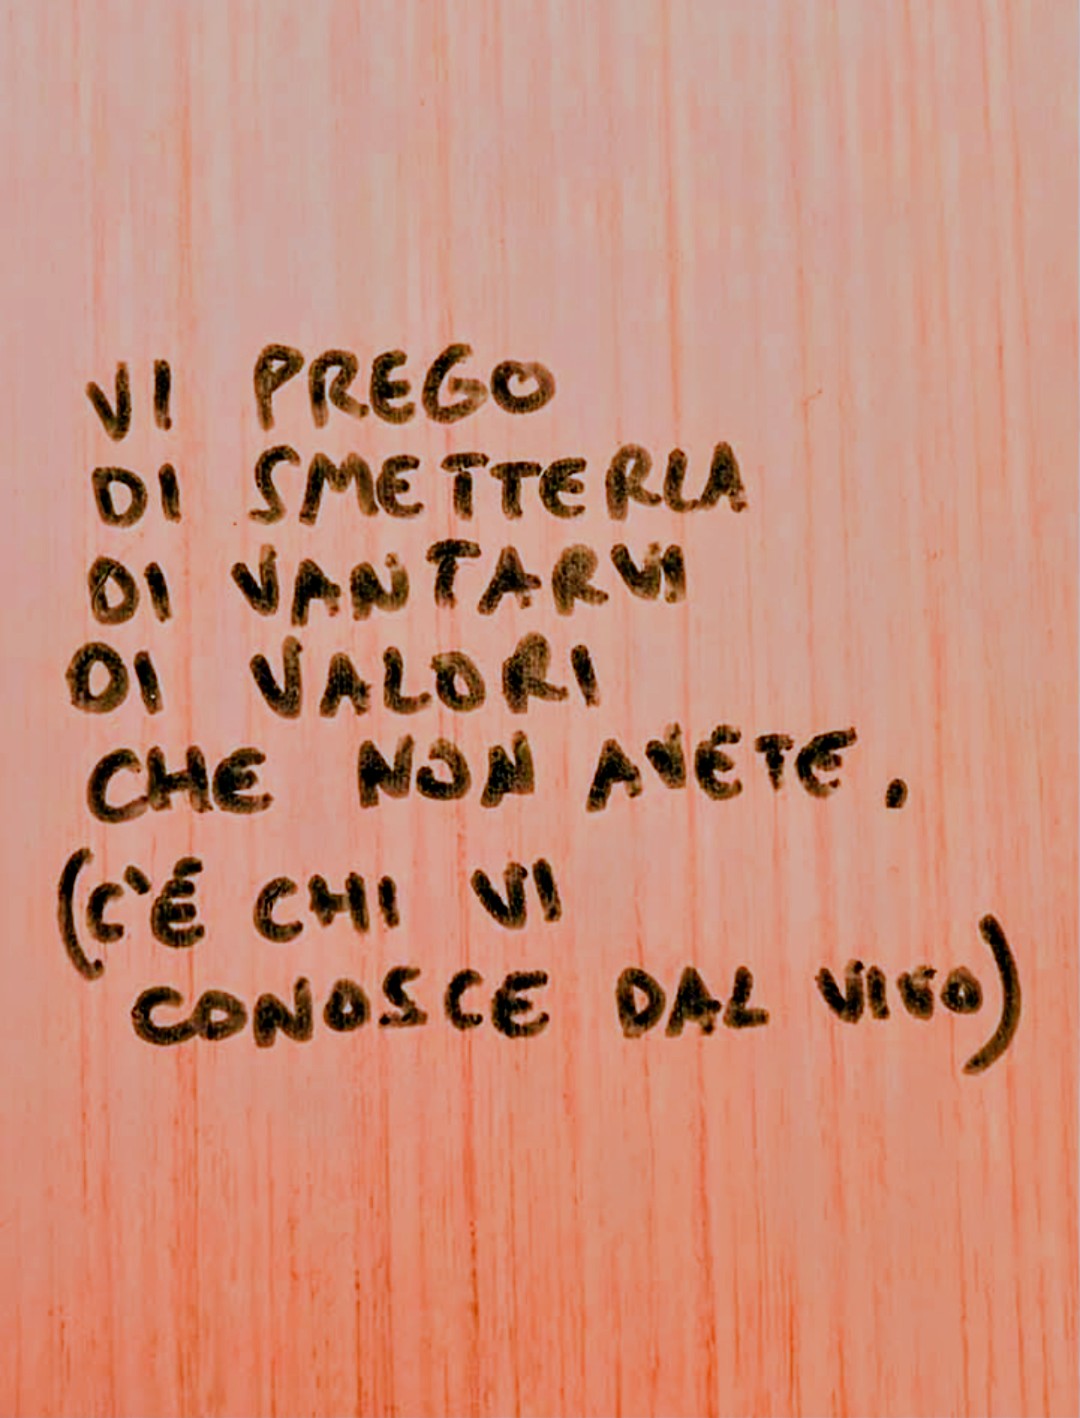 VI PREGO
DI SMETTERLA
DI VANTARVI
DI VALORI
CHE NON AVETE.
(C'È CHI VI
CONOSCE DAL VIVO)